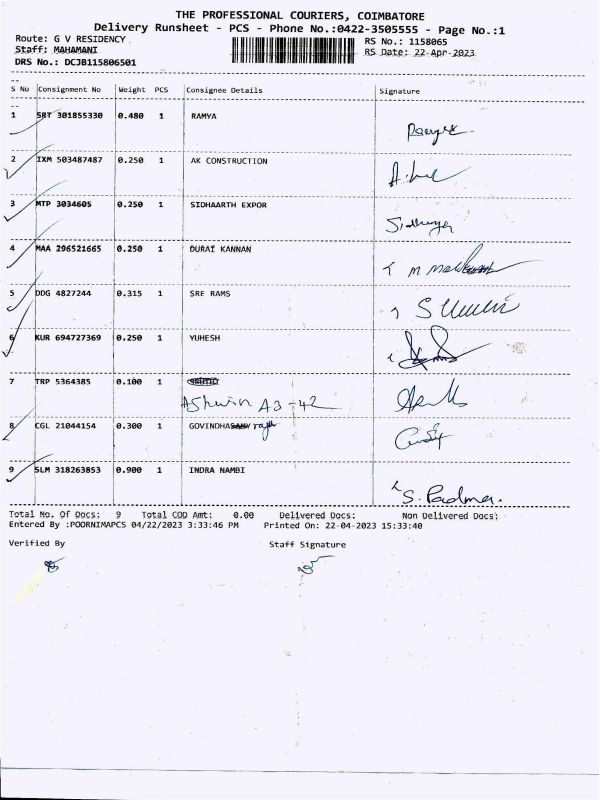 THE PROFESSIONAL COURIERS, COIMBATORE
Delivery Runsheet - PCS - Phone No.:0422-3505555 - Page No.:1
Route: G V RESIDENCY
RS No.: 1158065
Staff: MAHAMANI
RS Date: 22-Apr-2023
DRS No.: DCJB115806501
S No Consignment No Weight PCS Consignee Details Signature
1 SRT 301855330 0.480 1 RAMYA
2 IXM 503487487 0.250 1 AK CONSTRUCTION
3 MTP 3034605 0.250 1 SIDHAARTH EXPOR
4 MAA 296521665 0.250 1 DURAI KANNAN
5 DDG 4827244 0.315 1 SRE RAMS
6 KUR 694727369 0.250 1 YUHESH
7 TRP 5364385 0.100 1
Ashwin A3-42
8 CGL 21044154 0.300 1 GOVINDHASAMY
9 SLM 318263853 0.900 1 INDRA NAMBI
S. Padma.
Total No. Of Docs: 9 Total COD Amt: 0.00 Delivered Docs: Non Delivered Docs:
Entered By :POORNIMAPCS 04/22/2023 3:33:46 PM Printed On: 22-04-2023 15:33:40
Verified By Staff Signature